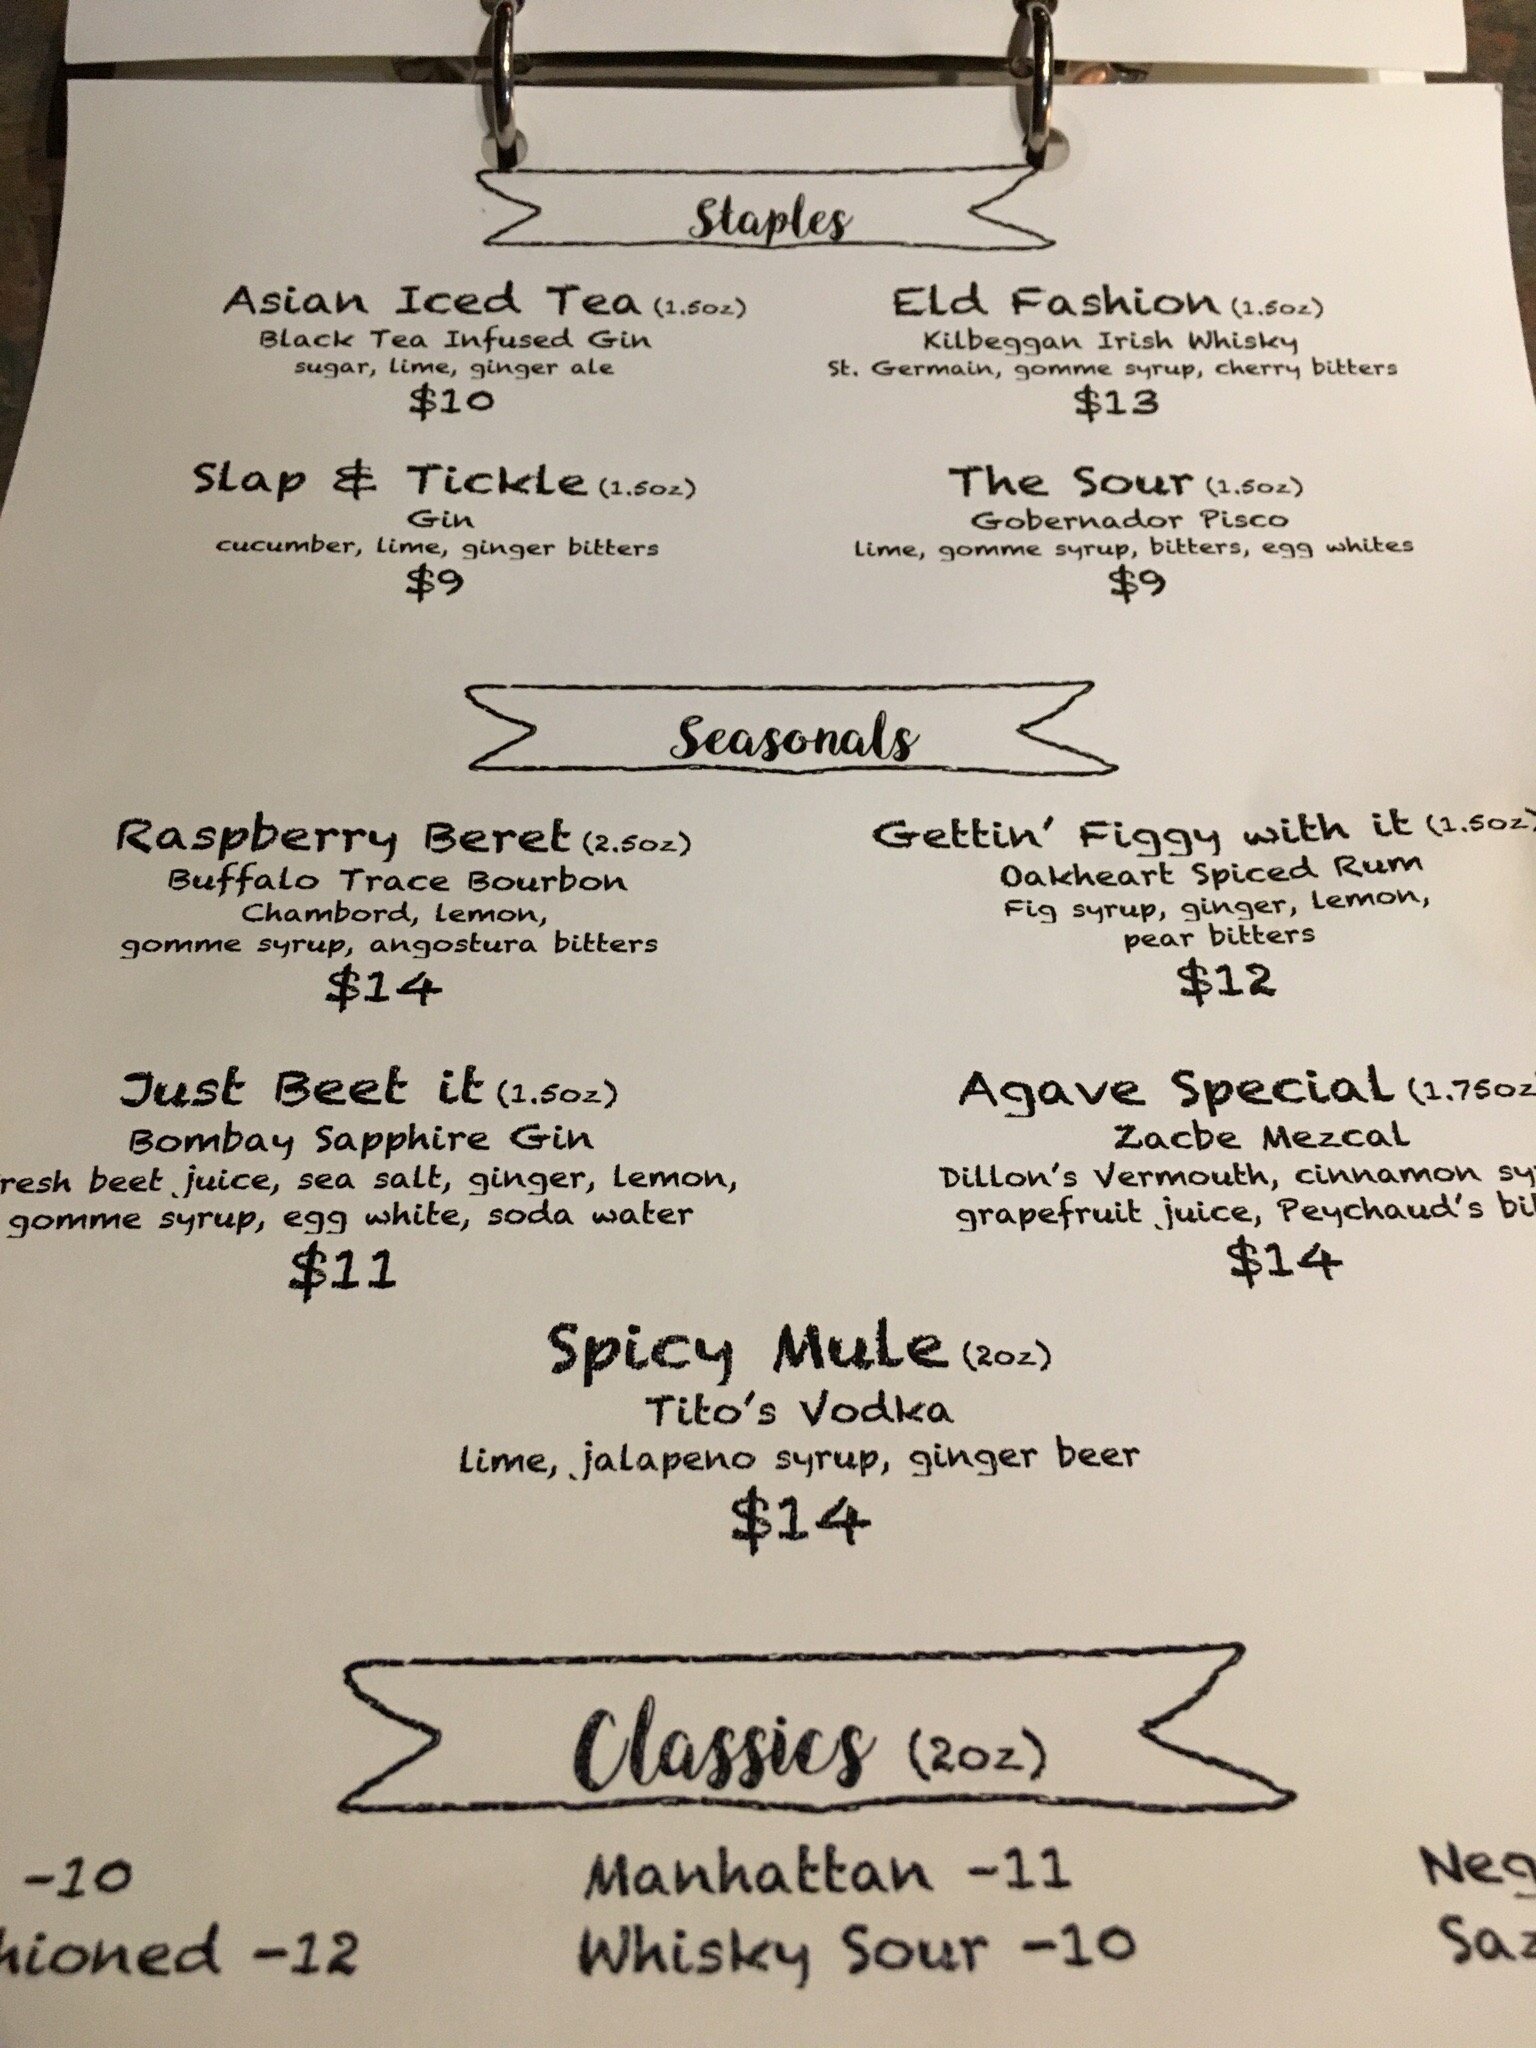 Staples
Asian Iced Tea (1.5oz)
Black Tea Infused Gin
sugar, lime, ginger ale
$10
Eld Fashion (1.5oz)
Kilbeggan Irish Whisky
St. Germain, gomme syrup, cherry bitters
$13
Slap & Tickle (1.5oz)
Gin
cucumber, lime, ginger bitters
$9
The Sour (1.5oz)
Gobernador Pisco
lime, gomme syrup, bitters, egg whites
$9
Seasonals
Raspberry Beret (2.5oz)
Buffalo Trace Bourbon
Chambord, lemon,
gomme syrup, angostura bitters
$14
Gettin' Figgy with it (1.5oz)
Oakheart Spiced Rum
Fig syrup, ginger, lemon,
pear bitters
$12
Just Beet it (1.5oz)
Bombay Sapphire Gin
resh beet juice, sea salt, ginger, lemon,
gomme syrup, egg white, soda water
$11
Agave Special (1.75oz
Zacbe Mezcal
Dillon's Vermouth, cinnamon sy
grapefruit juice, Peychaud's bi
$14
Spicy Mule (2oz)
Tito's Vodka
lime, jalapeno syrup, ginger beer
$14
Classics (2oz)
-10
Manhattan -11
Neg
hioned -12
Whisky Sour -10
Saz